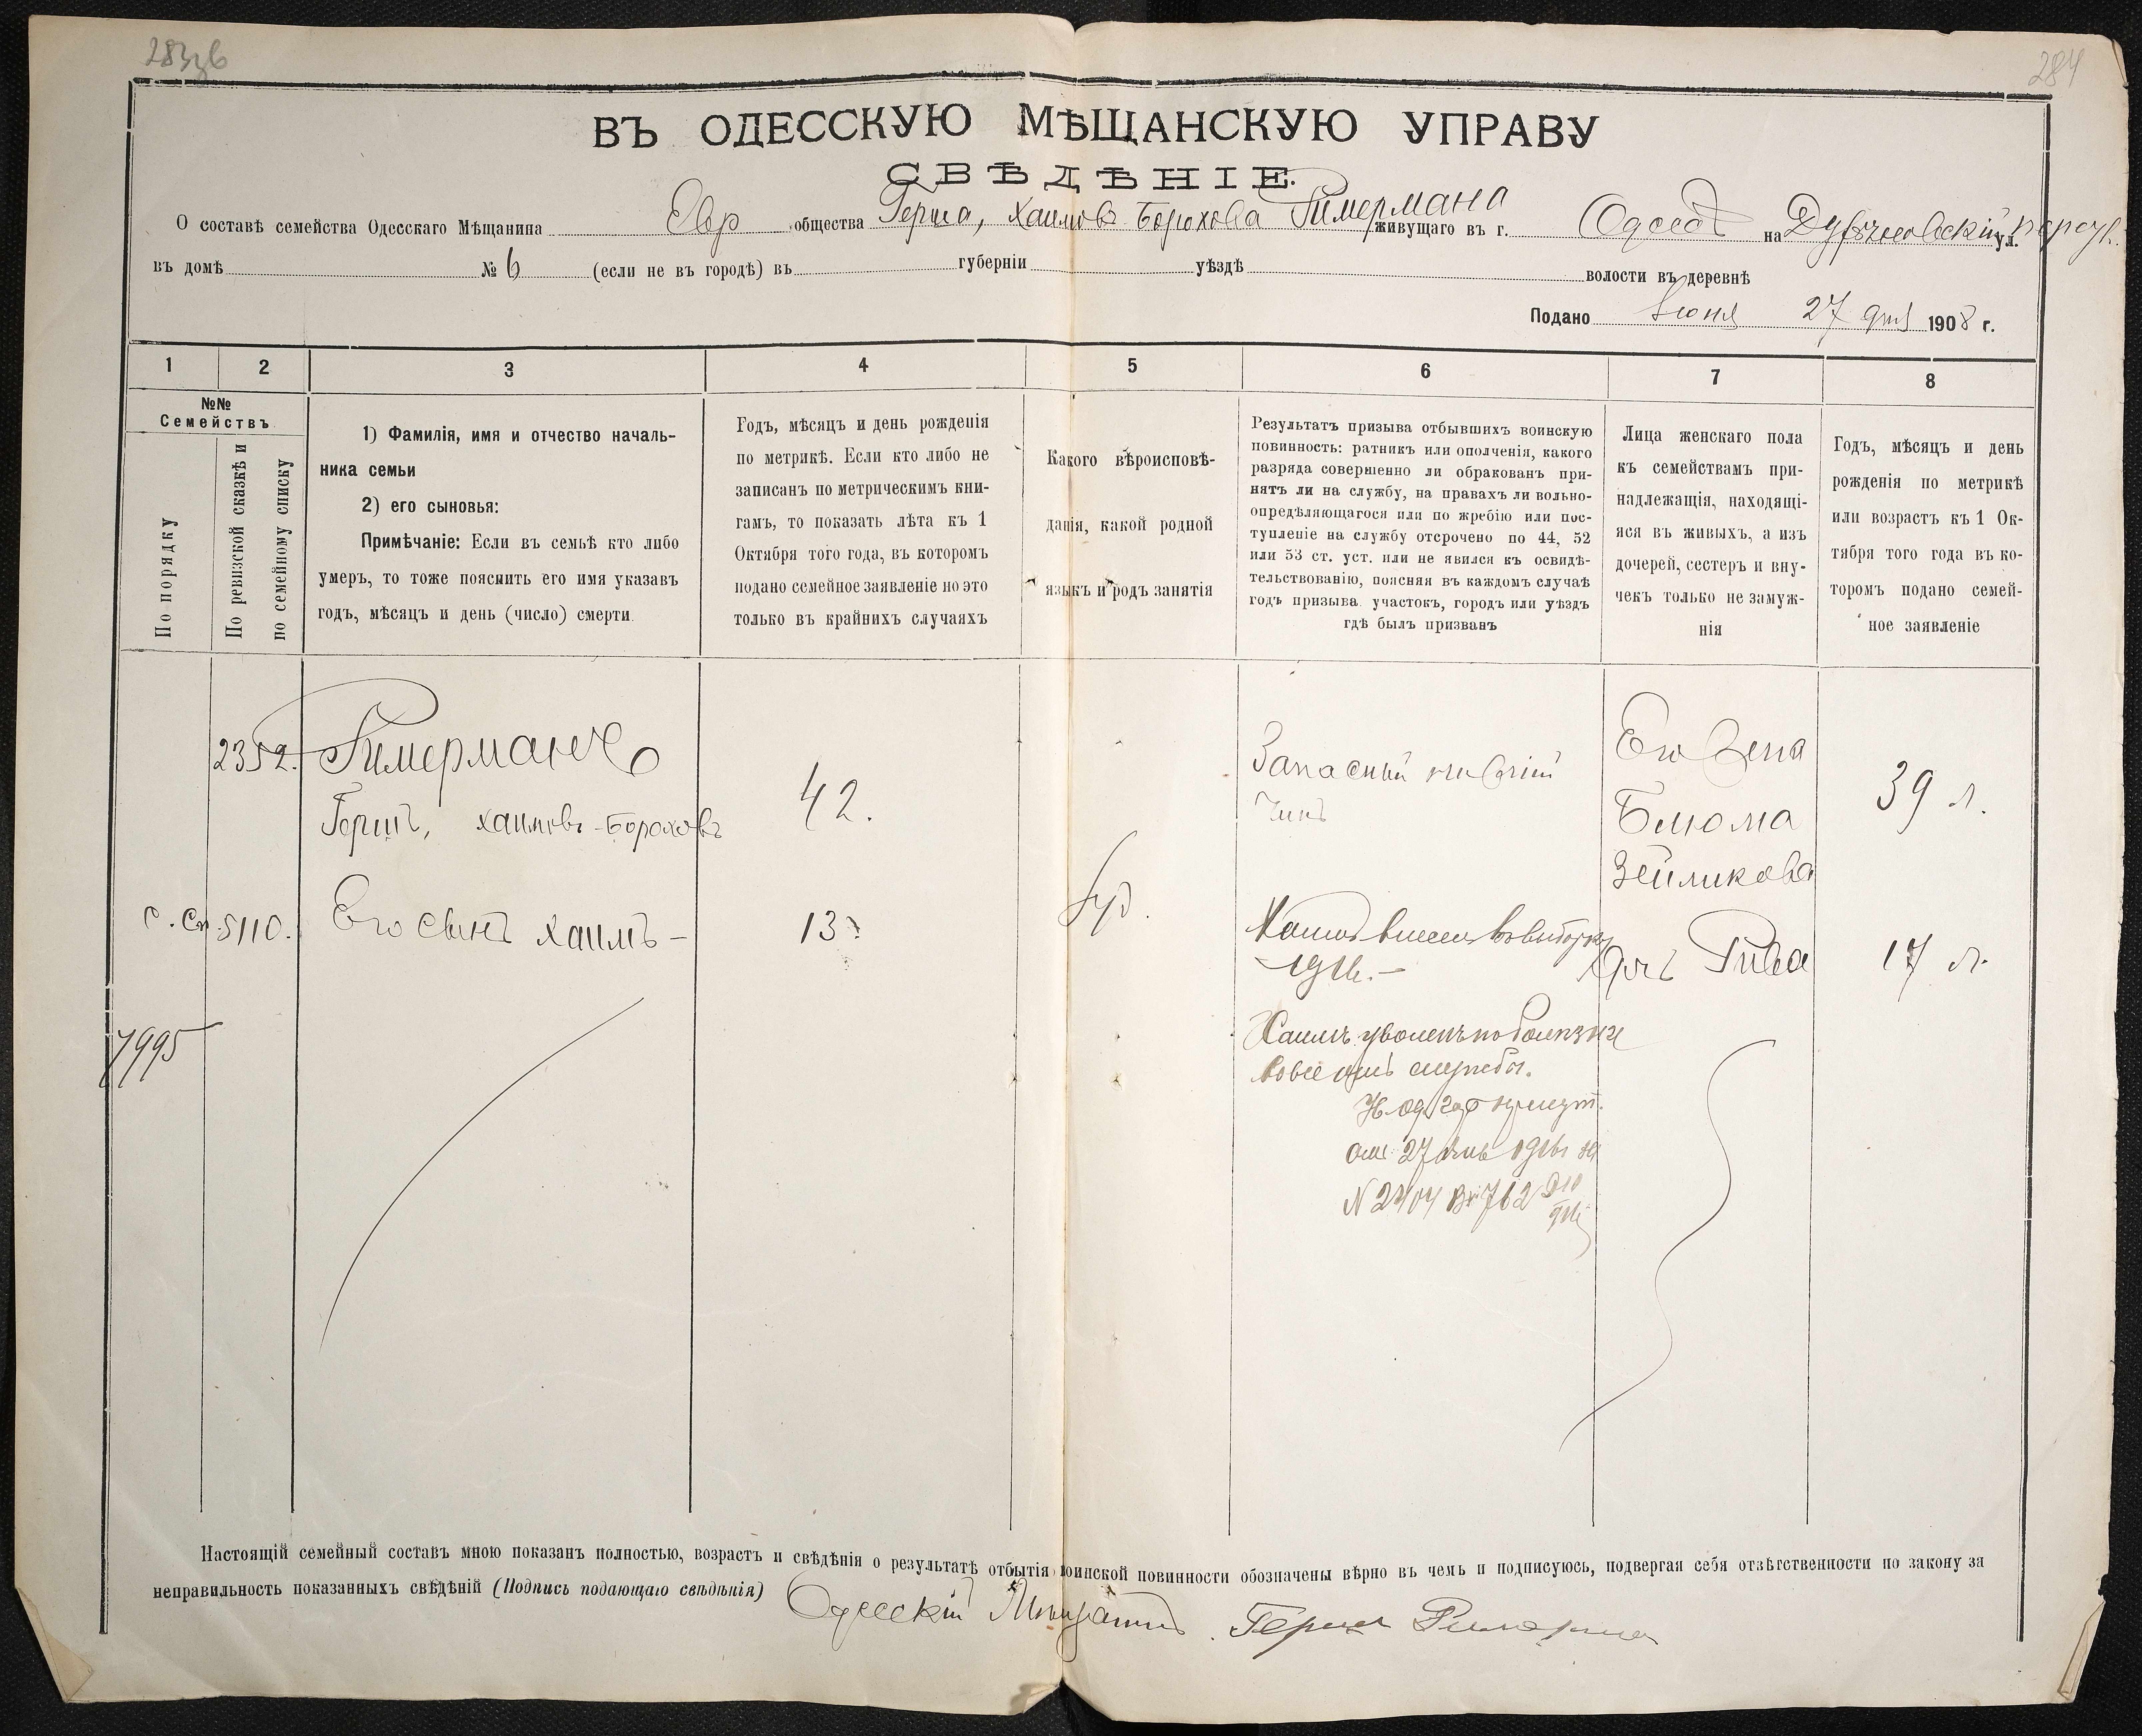 283об
284
ВЪ ОДЕССКУЮ МѢЩАНСКУЮ УПРАВУ
СВѢДѢНІЕ.
О составѣ семейства Одесскаго Мѣщанина Евр общества Герша, Хаимовъ-Борохова Римермана живущаго въ г. Одессѣ на ул.
въ домѣ № 6 (если не въ городѣ) въ губерніи уѣздѣ волости въ деревнѣ
Подано Іюня 27 дня 1908 г.
1 2 3 4 5 6 7 8
№№
Семействъ
По порядку
По ревизской сказкѣ и
по семейному списку
1) Фамилія, имя и отчество началь-
ника семьи
2) его сыновья:
Примѣчаніе: Если въ семьѣ кто либо
умеръ, то тоже пояснить его имя указавъ
годъ, мѣсяцъ и день (число) смерти.
Годъ, мѣсяцъ и день рожденія
по метрикѣ. Если кто либо не
записанъ по метрическимъ кни-
гамъ, то показать лѣта къ 1
Октября того года, въ которомъ
подано семейное заявленіе но это
только въ крайнихъ случаяхъ
Какого вѣроисповѣ-
данія, какой родной
языкъ и родъ занятія
Результатъ призыва отбывшихъ воинскую
повинность: ратникъ или ополченія, какого
разряда совершенно ли обракованъ при-
нятъ ли на службу, на правахъ ли вольно-
опредѣляющагося или по жребію или пос-
тупленіе на службу отсрочено по 44, 52
или 53 ст. уст. или не явился къ освидѣ-
тельствованію, поясняя въ каждомъ случаѣ
годъ призыва участокъ, городъ или уѣздъ
гдѣ былъ призванъ
Лица женскаго пола
къ семействамъ при-
надлежащія, находящі-
яся въ живыхъ, а изъ
дочерей, сестеръ и вну-
чекъ только не замуж-
нія
Годъ, мѣсяцъ и день
рожденія по метрикѣ
или возрастъ къ 1 Ок-
тября того года въ ко-
торомъ подано семей-
ное заявленіе
2352. Римерманъ
Гершъ, Хаимовъ-Бороховъ
42.
Запасный нижній
чинъ
Его жена
Блюма
Зейликова
39 л.
С. Сп. 5110. Его сынъ Хаимъ -
13.
Хаимъ внесенъ въ выборку
1916. -
дочь Рива
17 л.
7995
Хаимъ уволенъ по болѣзни
вовсе отъ службы.
от 27 1916 за
N 2404 Вх 762
Настоящій семейный составъ мною показанъ полностью, возрастъ и свѣдѣнія о результатѣ отбытія воинской повинности обозначены вѣрно въ чемъ и подписуюсь, подвергая себя отвѣтственности по закону за
неправильность показанныхъ свѣдѣній (Подпись подающаго свѣдѣнія) Одесскій Мѣщанинъ Гершъ Римерманъ